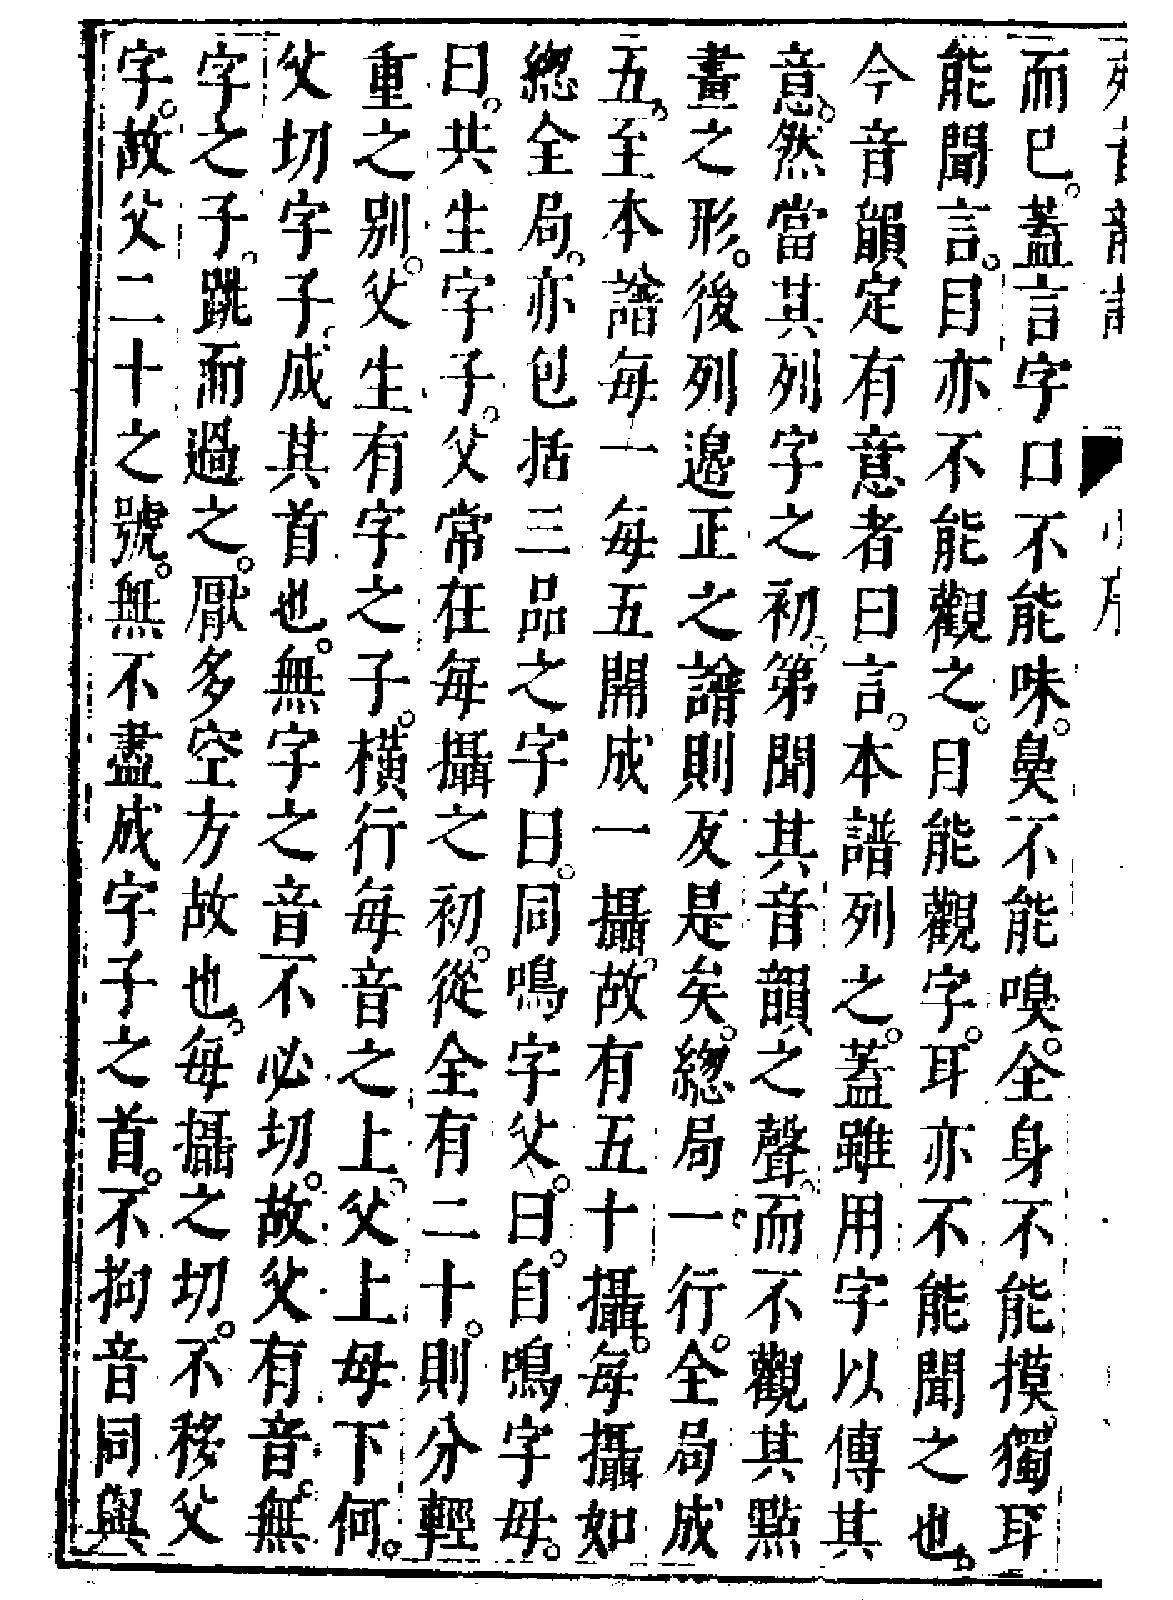 而巳。蓋言字口不能味。鼻不能嗅。全身不能摸。獨耳
能聞言。目亦不能觀之。目能觀字。耳亦不能聞之也。
今音韻定有意者曰言。本譜列之。蓋雖用字以傳其
意。然當其列字之初。第聞其音韻之聲。而不觀其點
畫之形。後列邉正之譜則反是矣。緫局一行。全局成
五。至本譜每一每五開成一攝。故有五十攝。每攝如
緫全局。亦包括三品之字曰。同鳴字父。曰。自鳴字母。
曰。共生字子。父常在每攝之初。從全有二十。則分輕
重之别。父生有字之子。橫行每音之上。父上母下何。
父切字子。成其首也。無字之音不必切。故父有音。無
字之子。跳而過之。厭多空方故也。每攝之切。不移父
字。故父二十之號。無不盡成字子之首。不拘音同與